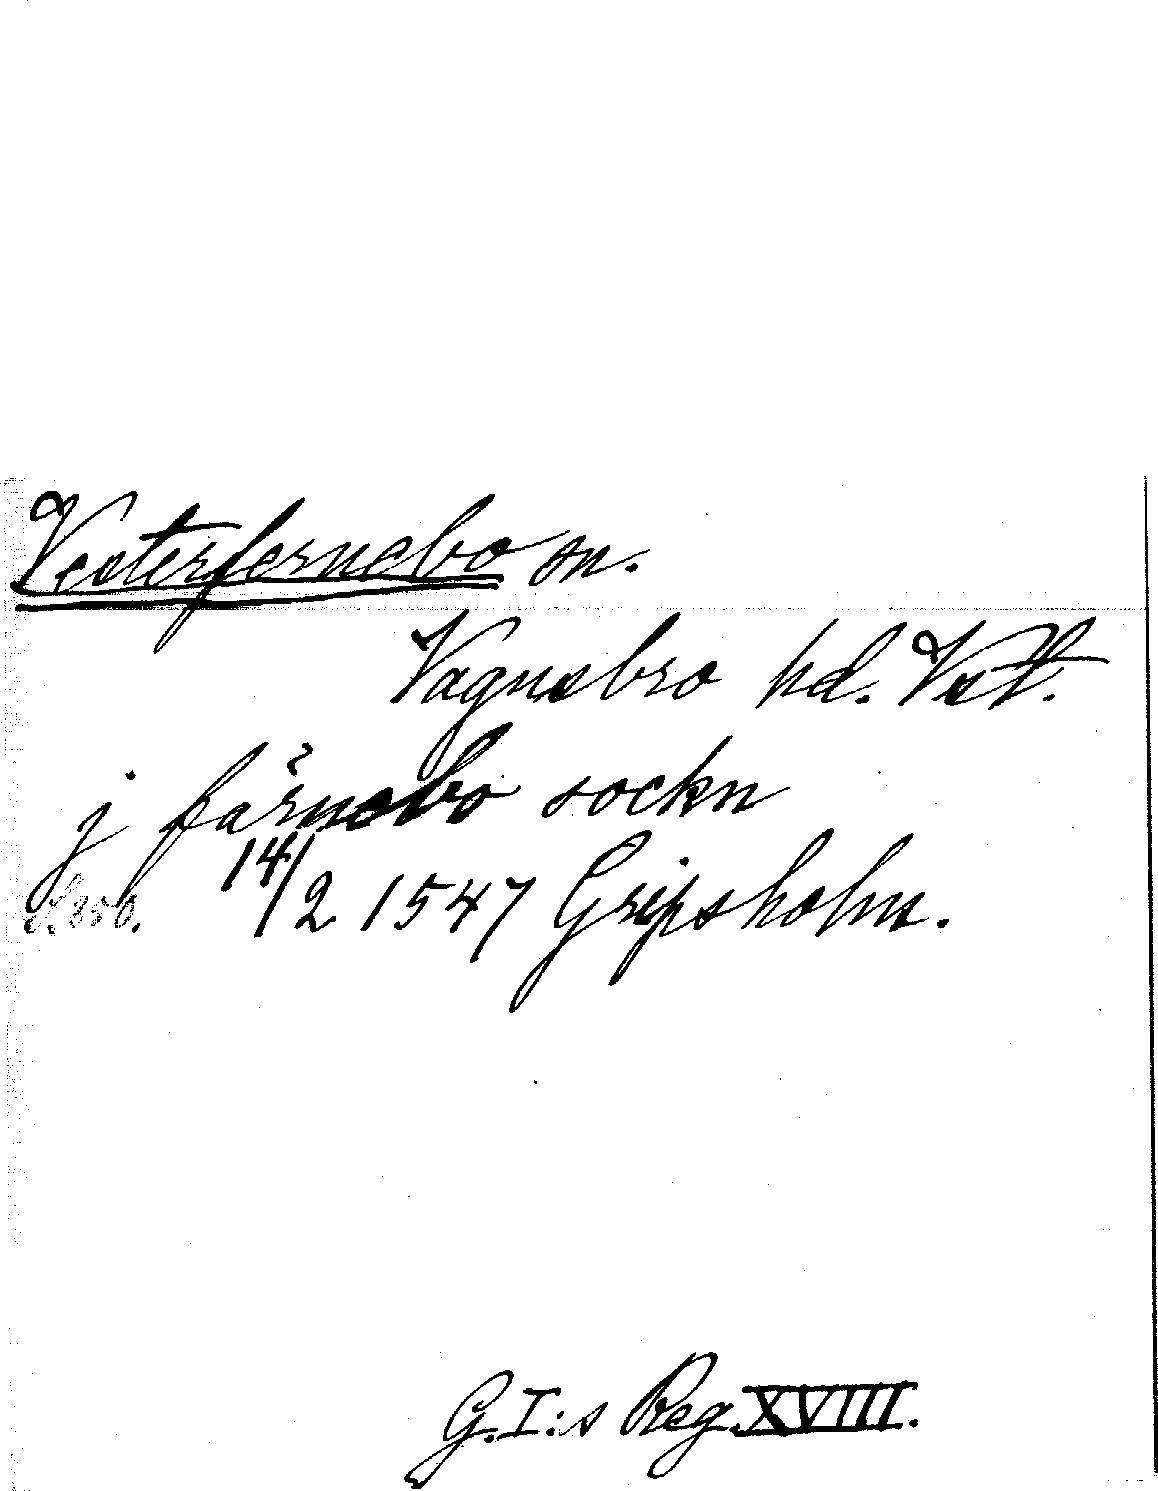 Vesterfernebo sn.
Vagnsbro hd. Vstt.
j färnebo sockn
14/2 1547 Gripsholm.
G.I:s Reg. XVIII.